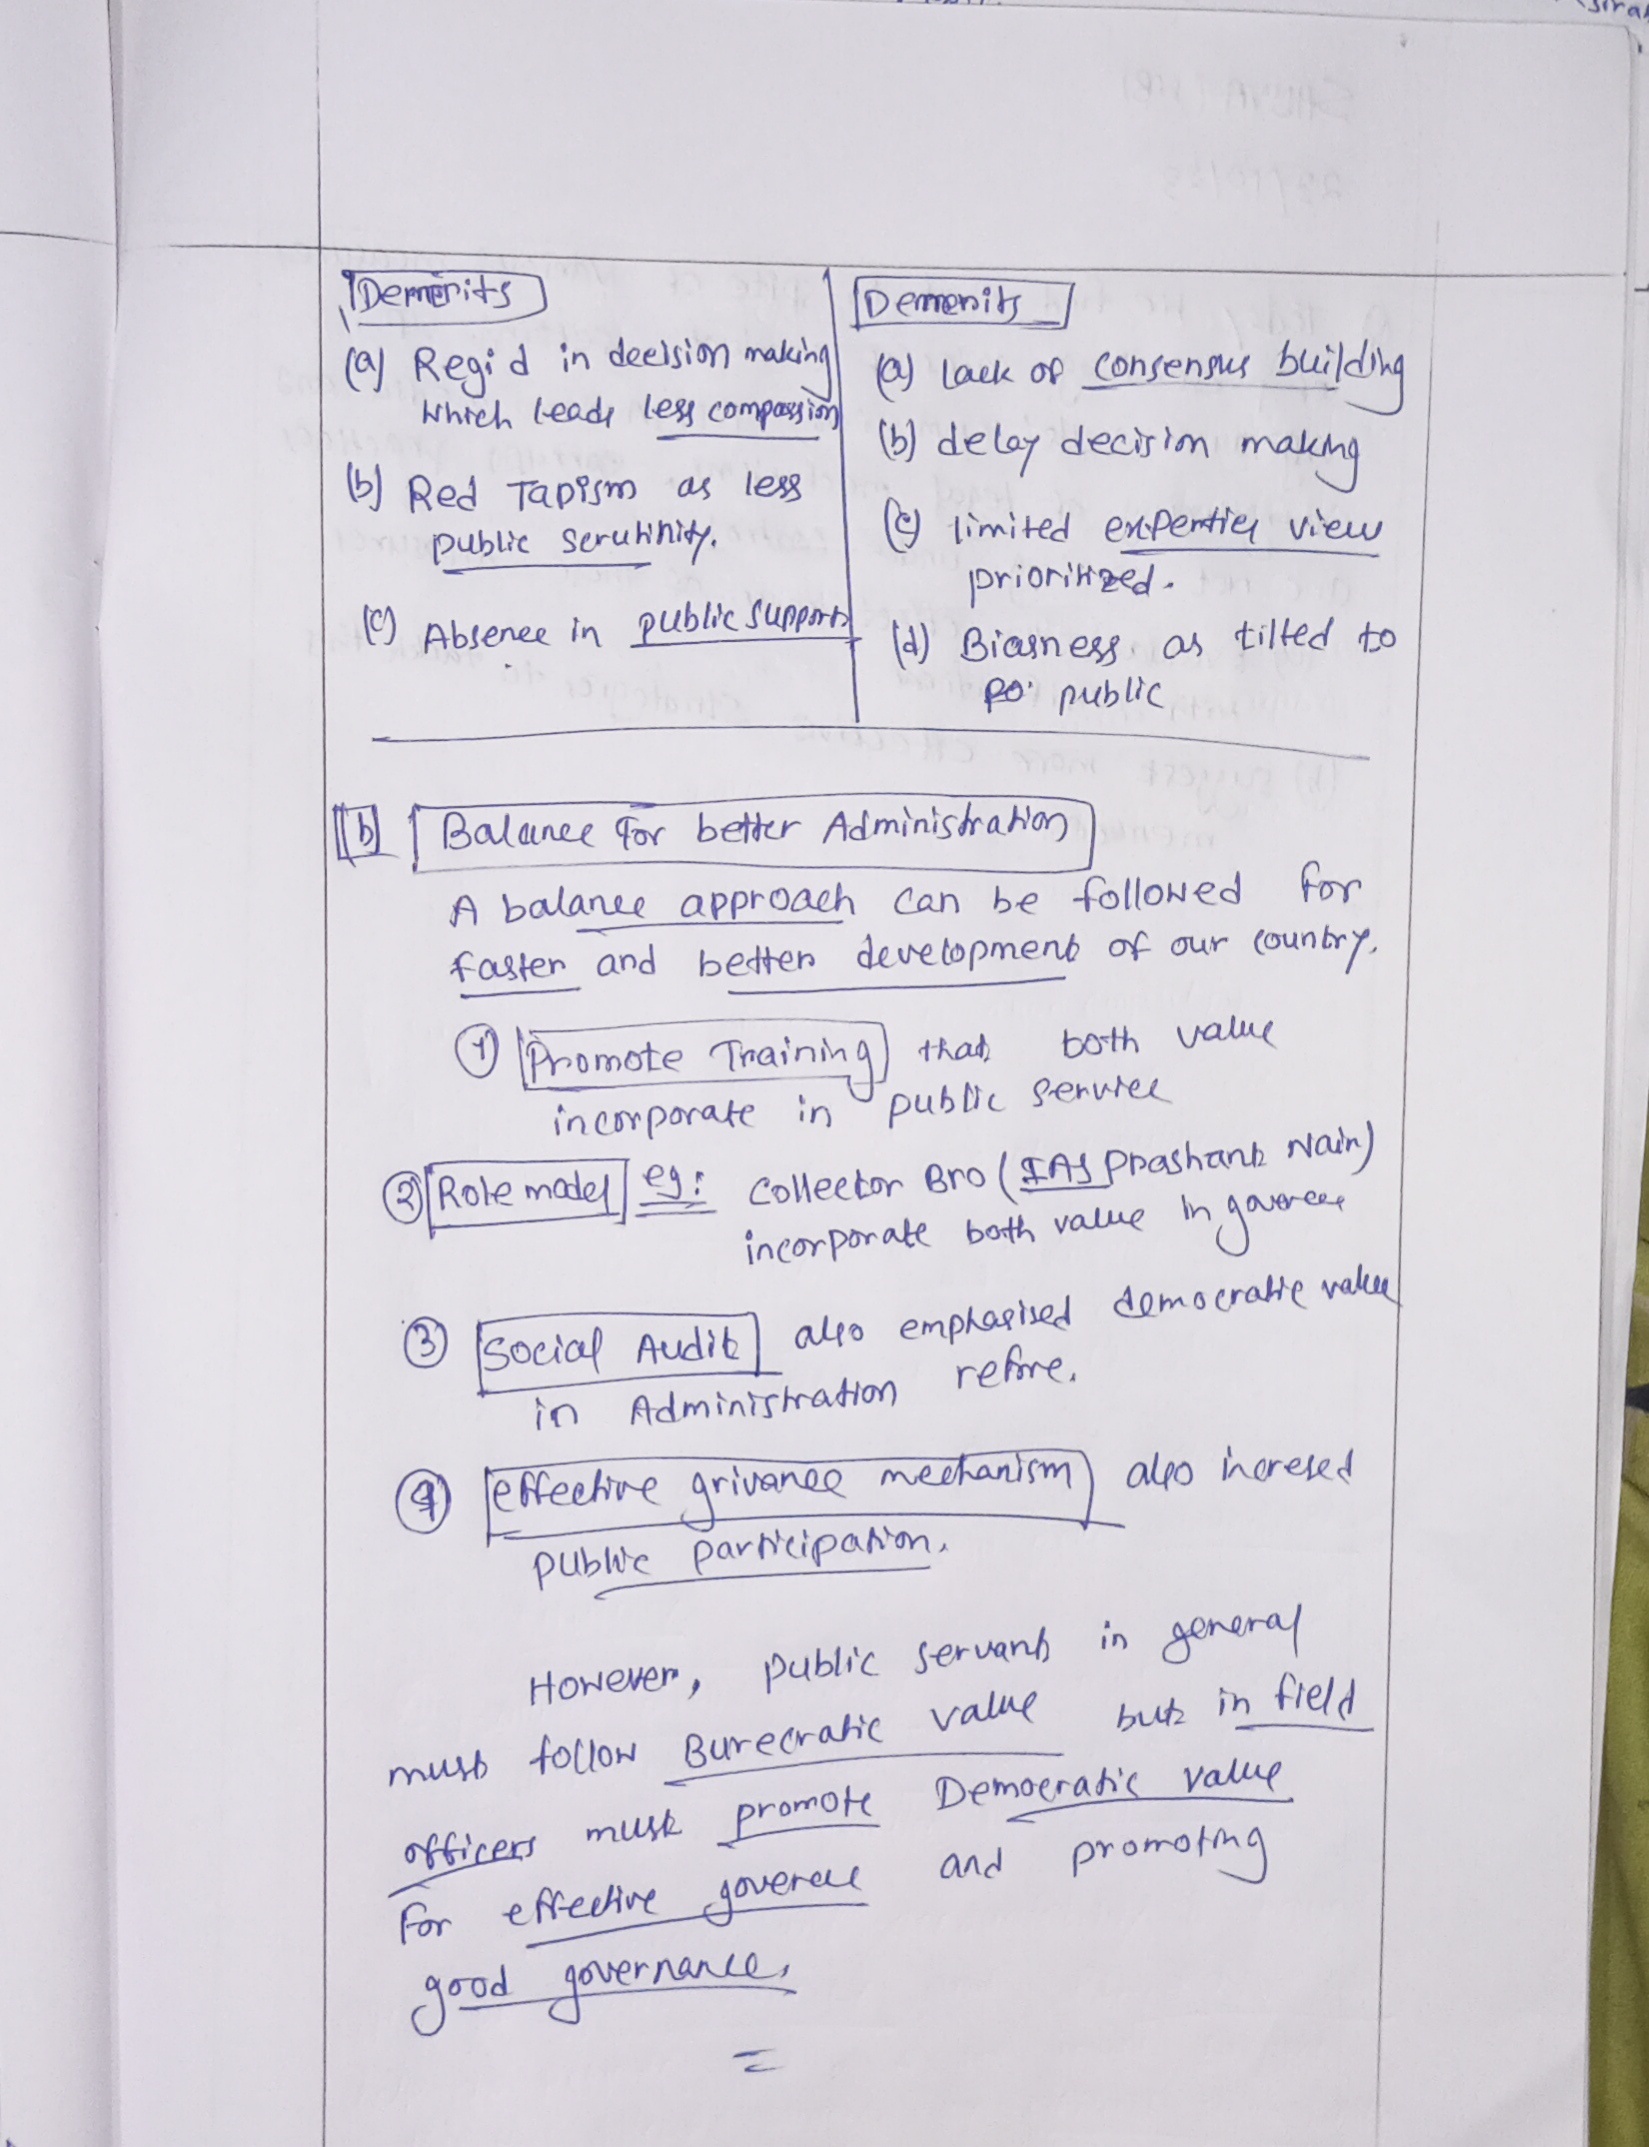 Demerits
(a) Regid in decision making
which leads less compassion
(b) Red Tapism as less
public scrutinity.
(c) Absence in public support
Demerits
(a) lack of consensus building
(b) delay decision making
(c) limited experties view
prioritized.
(d) Biasness as tilted to
public
(b) Balance for better Administration
A balance approach can be followed for
faster and better development of our country.
① Promote Training that both value
incorporate in public service
② Role model eg: Collector Bro (IAS Prashant Nair)
incorporate both value in governce
③ Social Audit also emphasised democratic value
in Administration
④ effective grivance mechanism also incresed
public participation.
However, public servant in general
must follow Burecratic value but in field
officers must promote Democratic value
for effective governce and promoting
good governance.